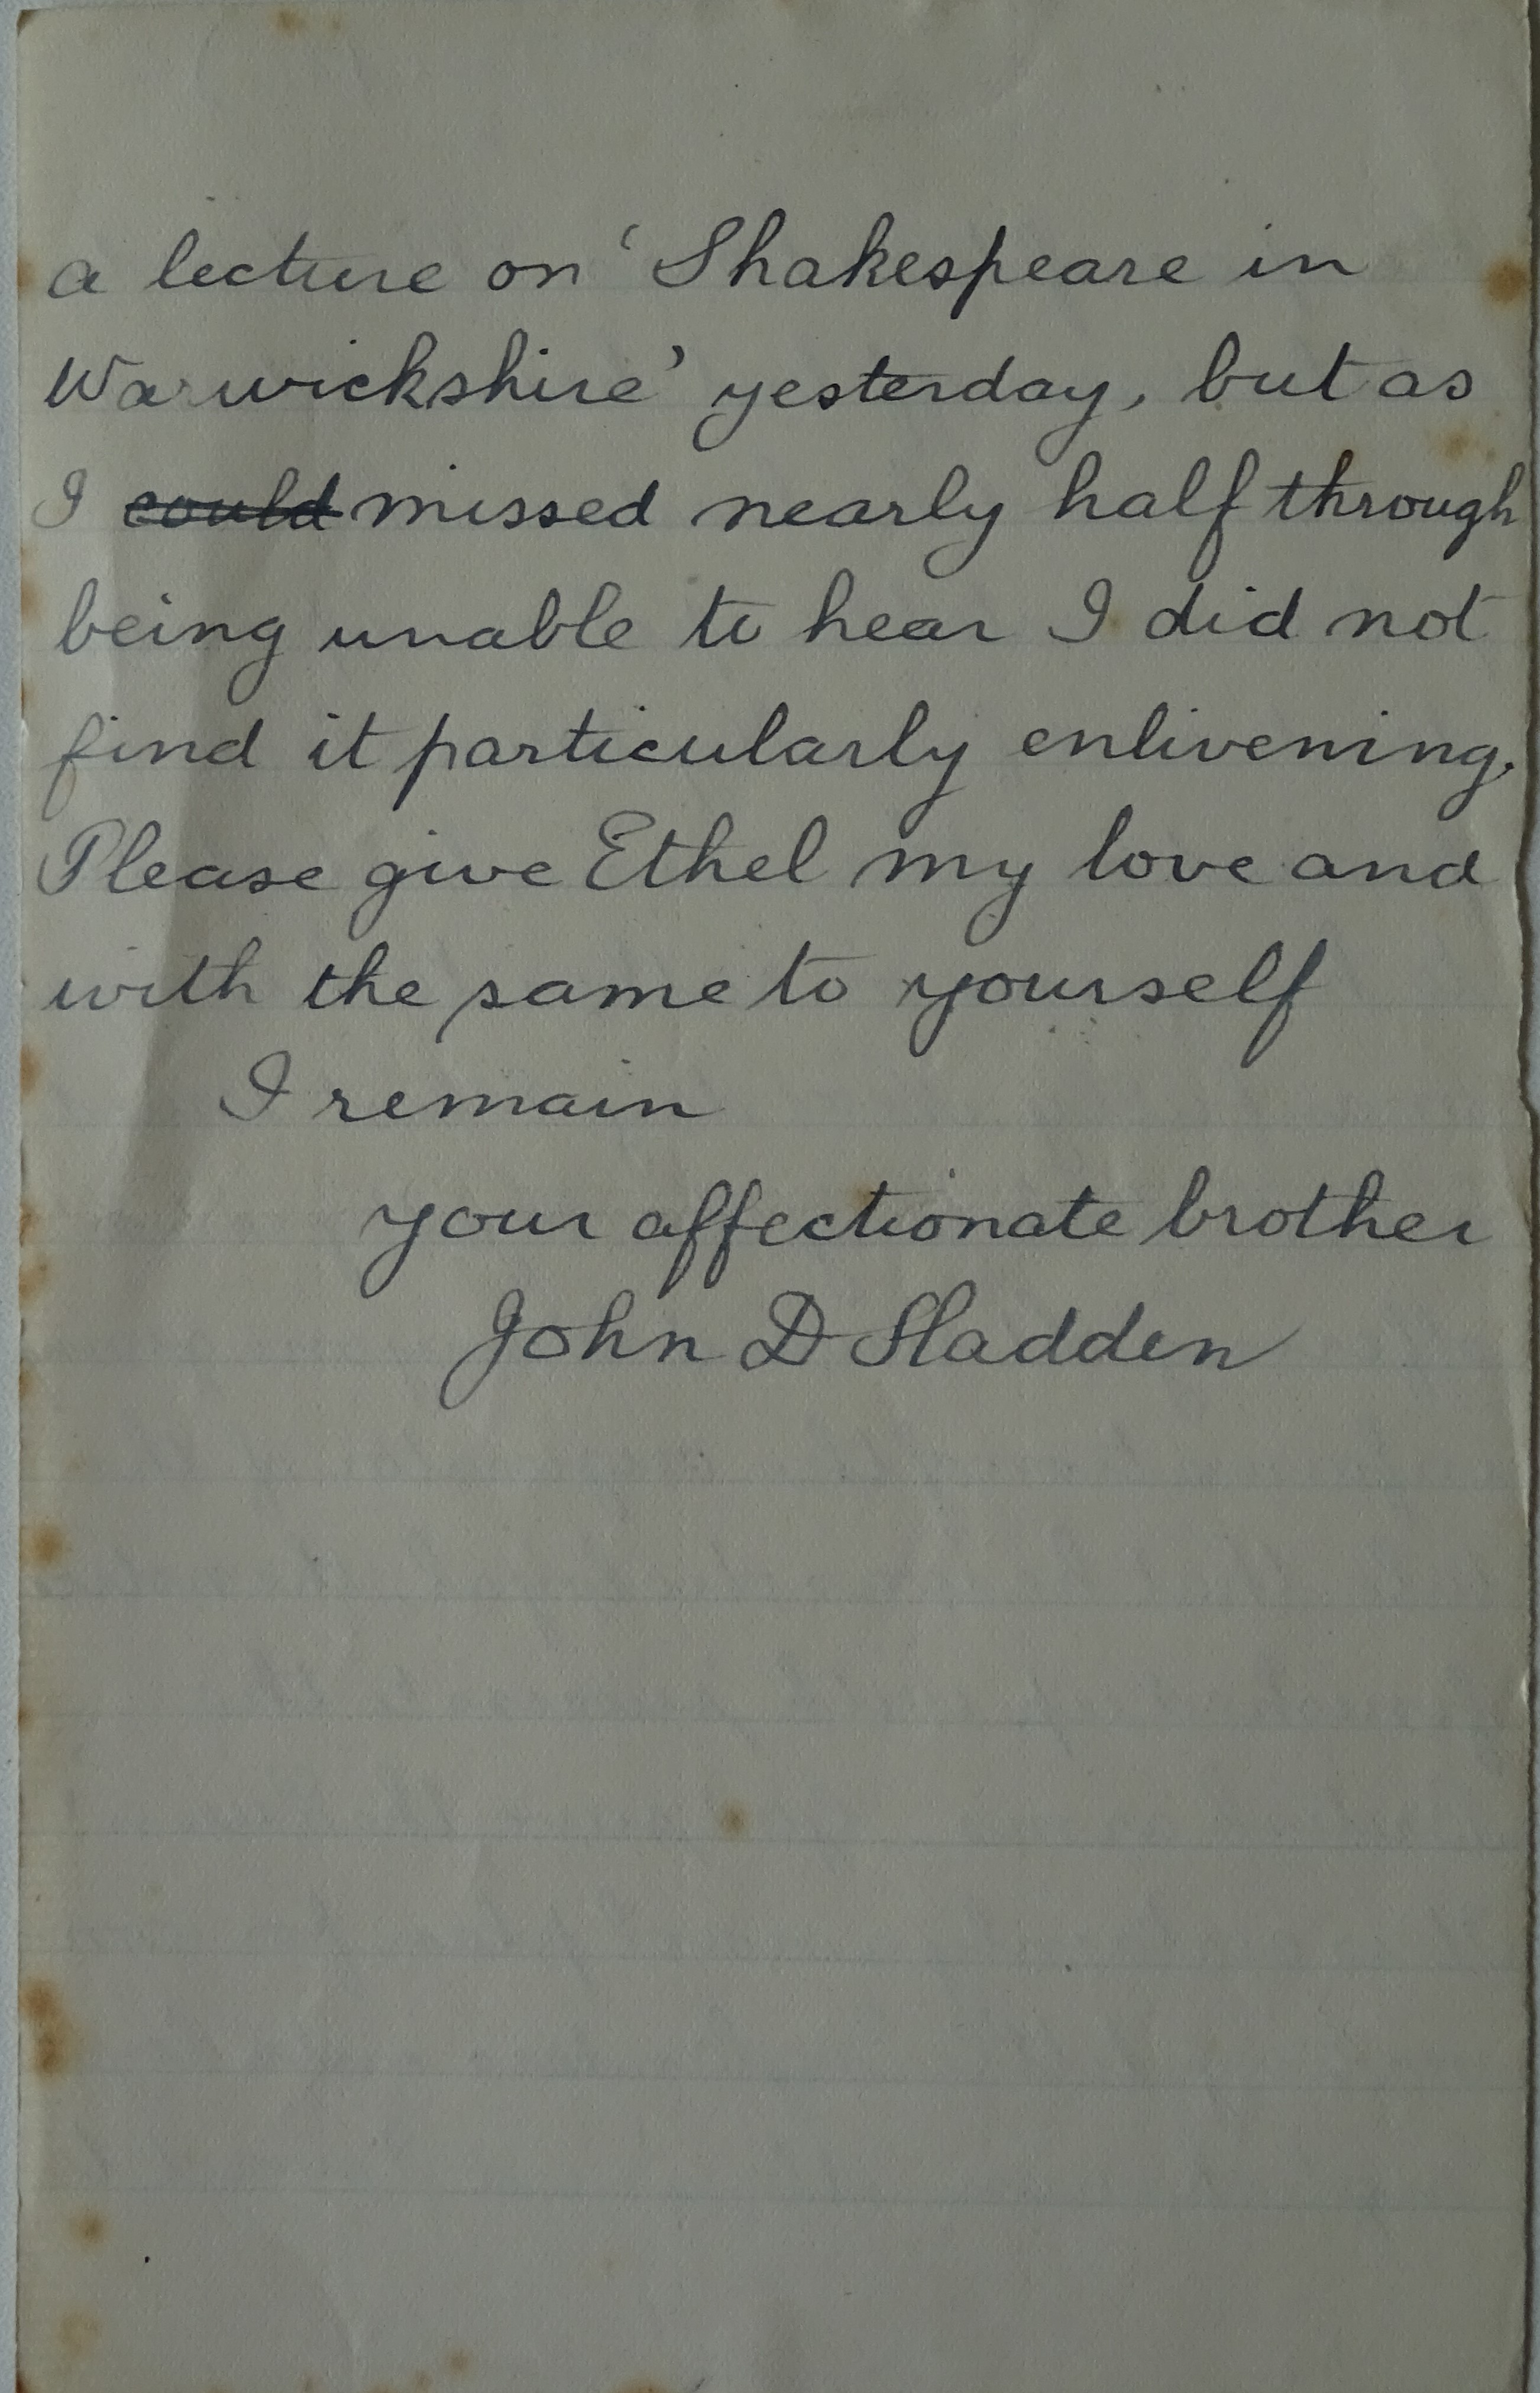 a lecture on 'Shakespeare in
Warwickshire' yesterday, but as
I could missed nearly half through
being unable to hear I did not
find it particularly enlivening.
Please give Ethel my love and
with the same to yourself
I remain
your affectionate brother
John D Sladden